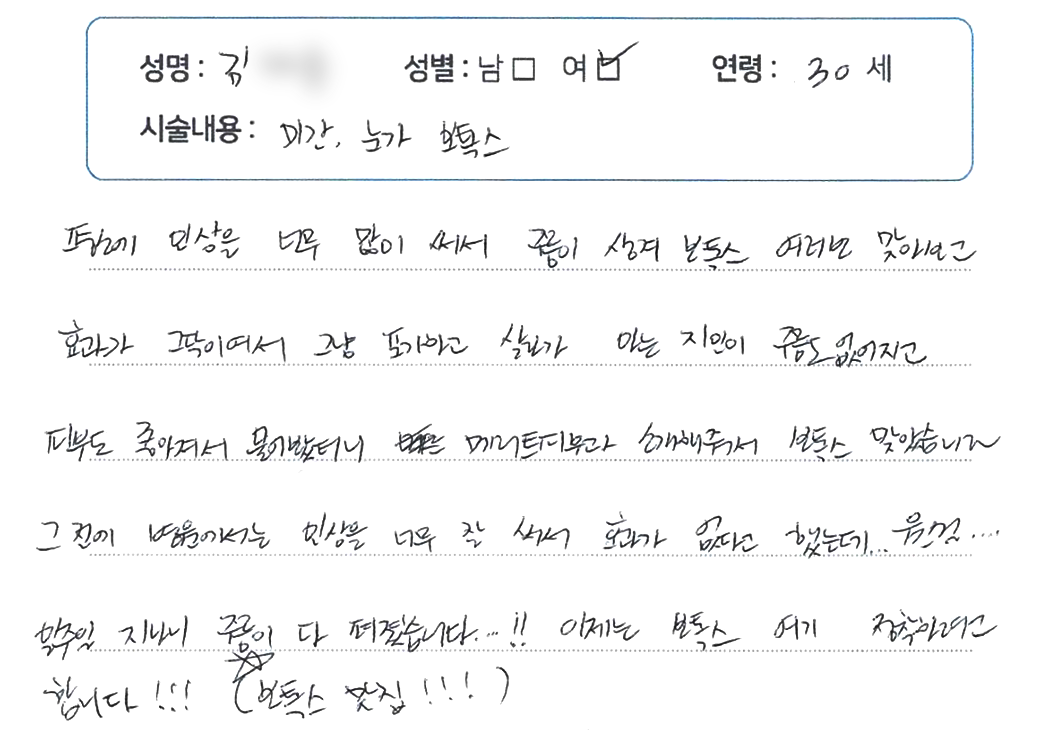 성명: 김 성별: 남 □ 여 ☑ 연령: 30 세
시술내용: 미간, 눈가 보톡스
평상시에 인상을 너무 많이 써서 주름이 생겨 보톡스 여러번 맞아보고
효과가 그닥이여서 그냥 포기하고 살다가 아는 지인이 주름도 없어지고
피부도 좋아져서 물어봤더니 메리트피부과 소개해주셔서 보톡스 맞았습니다
그 전에 병원에서는 인상을 너무 잘 써서 효과가 없다고 했는데... 음....
일주일 지나니 주름이 다 펴졌습니다...!! 이제는 보톡스 여기 정착하려고
합니다!!! (보톡스 맛집!!!)